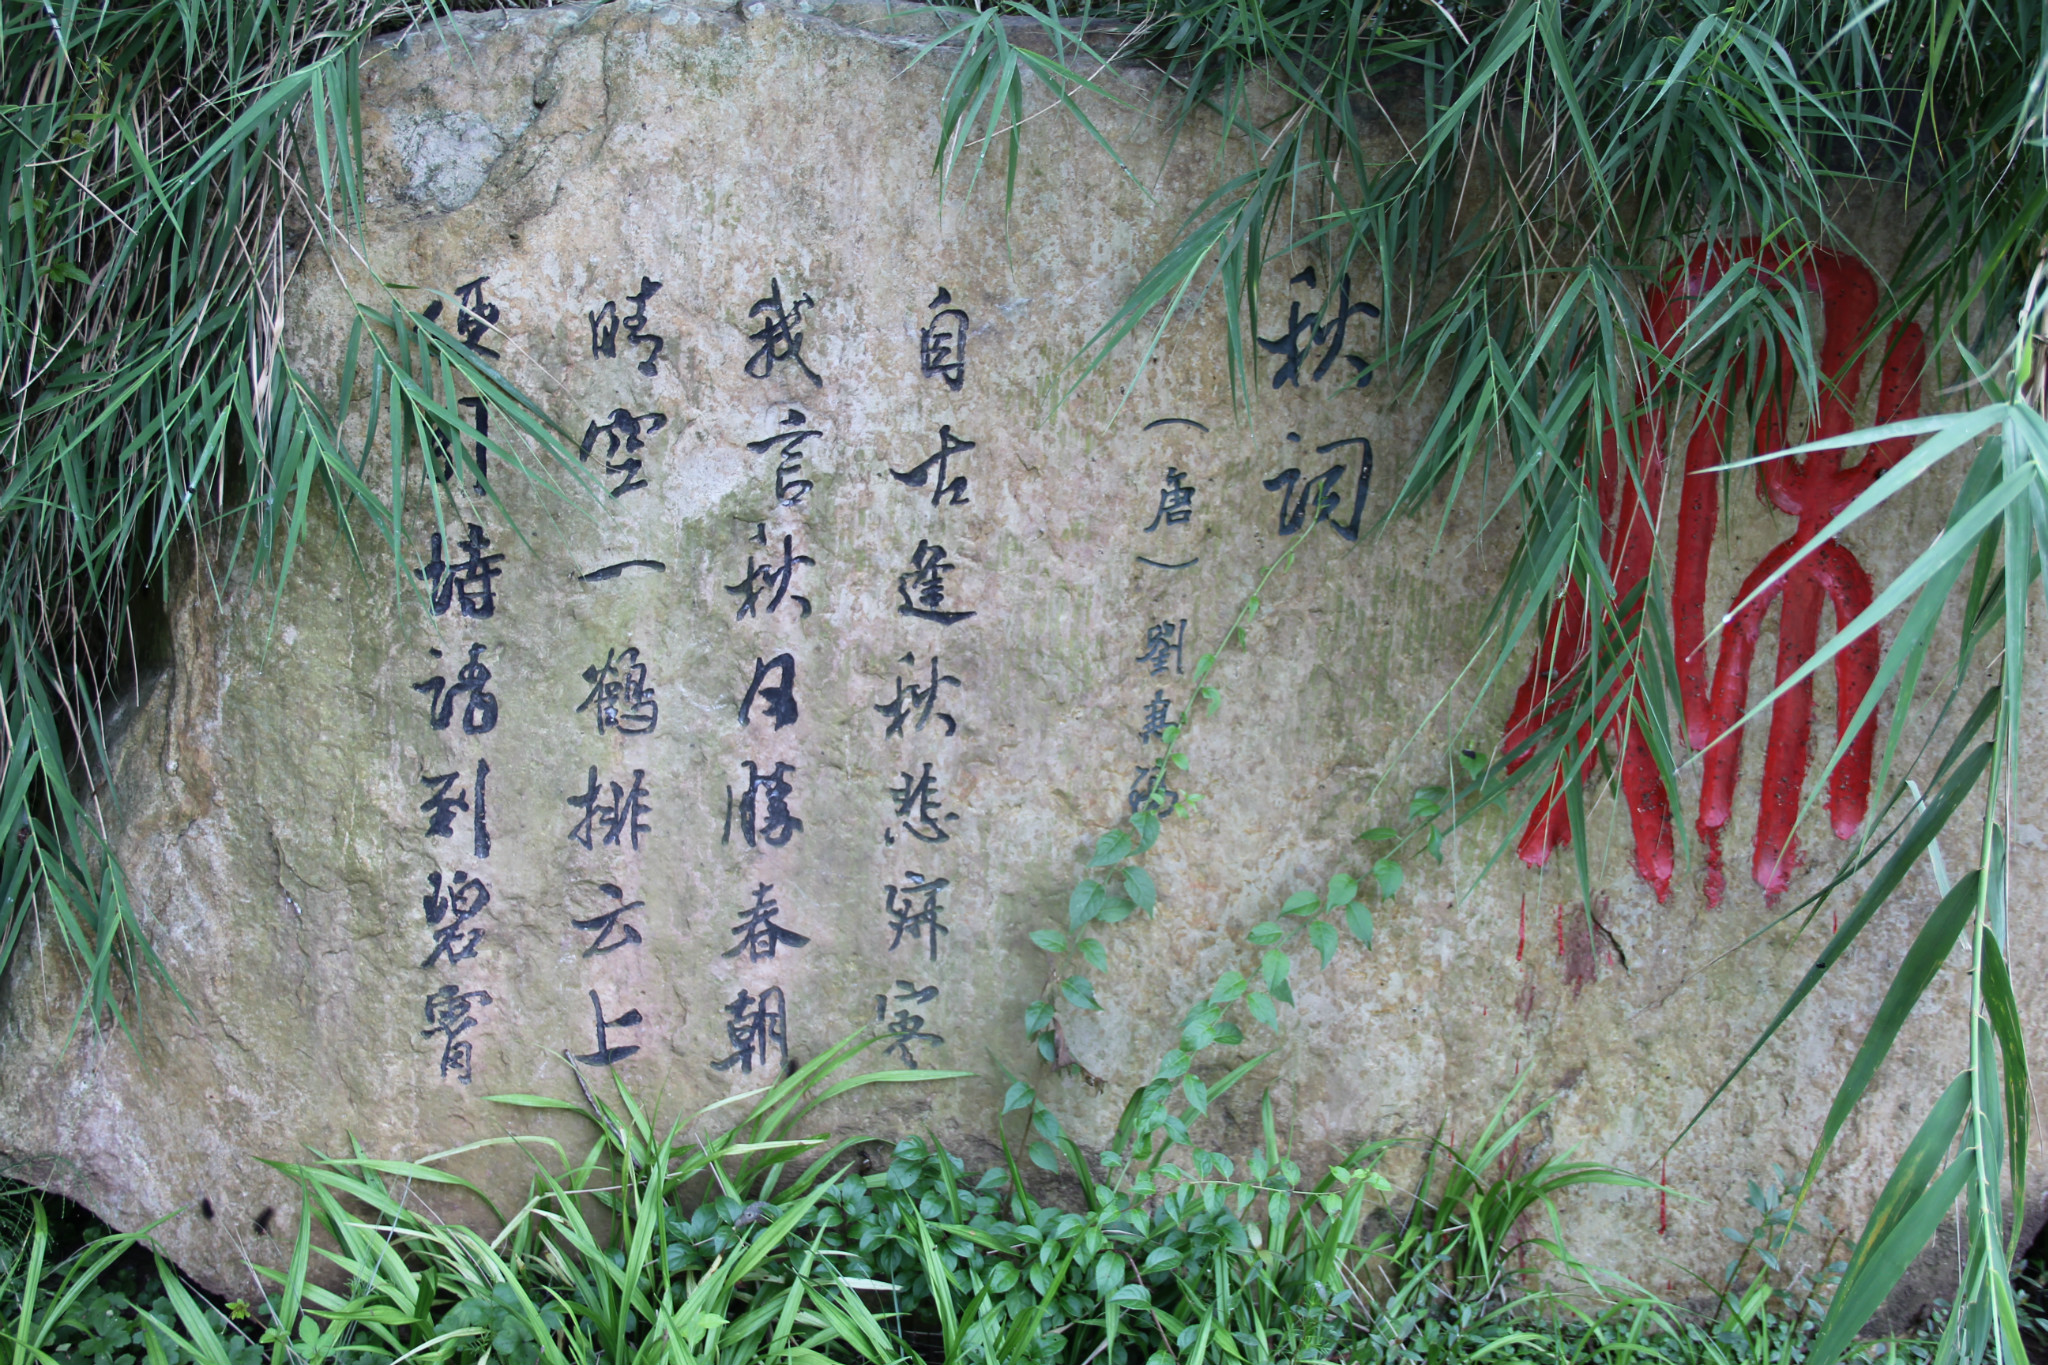 秋詞
（唐）劉禹錫
自古逢秋悲寂寥
我言秋日勝春朝
晴空一鶴排云上
便引詩情到碧霄